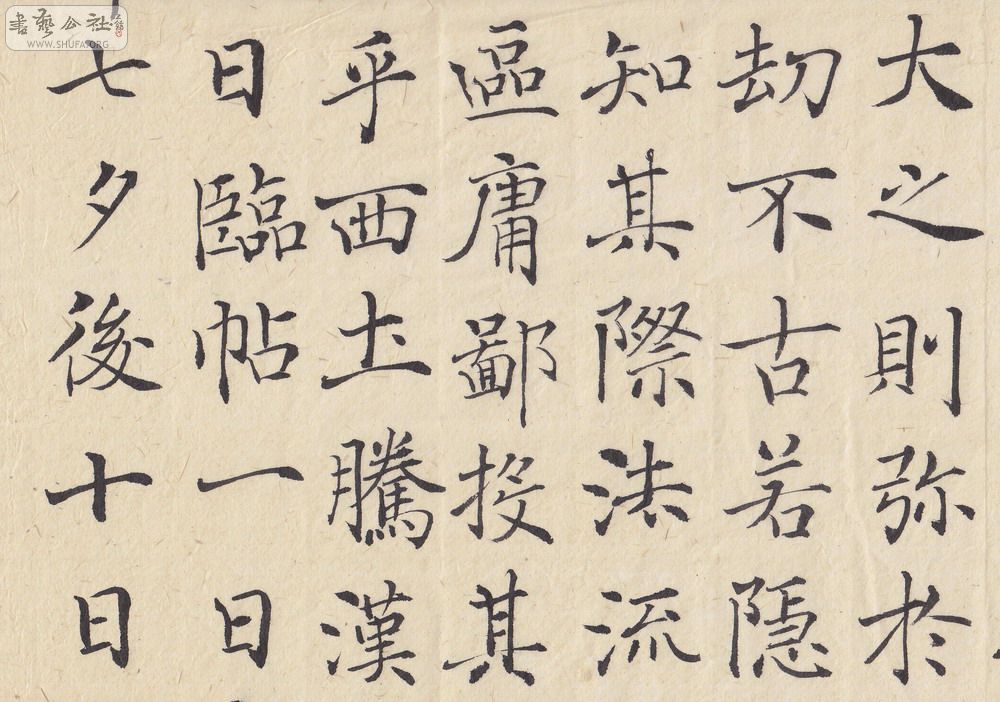 大之則弥於
劫不古若隱
知其際法流
區庸鄙投其
乎西土騰漢
日臨帖一日
七夕後十日
書藝公社
WWW.SHUFA.ORG